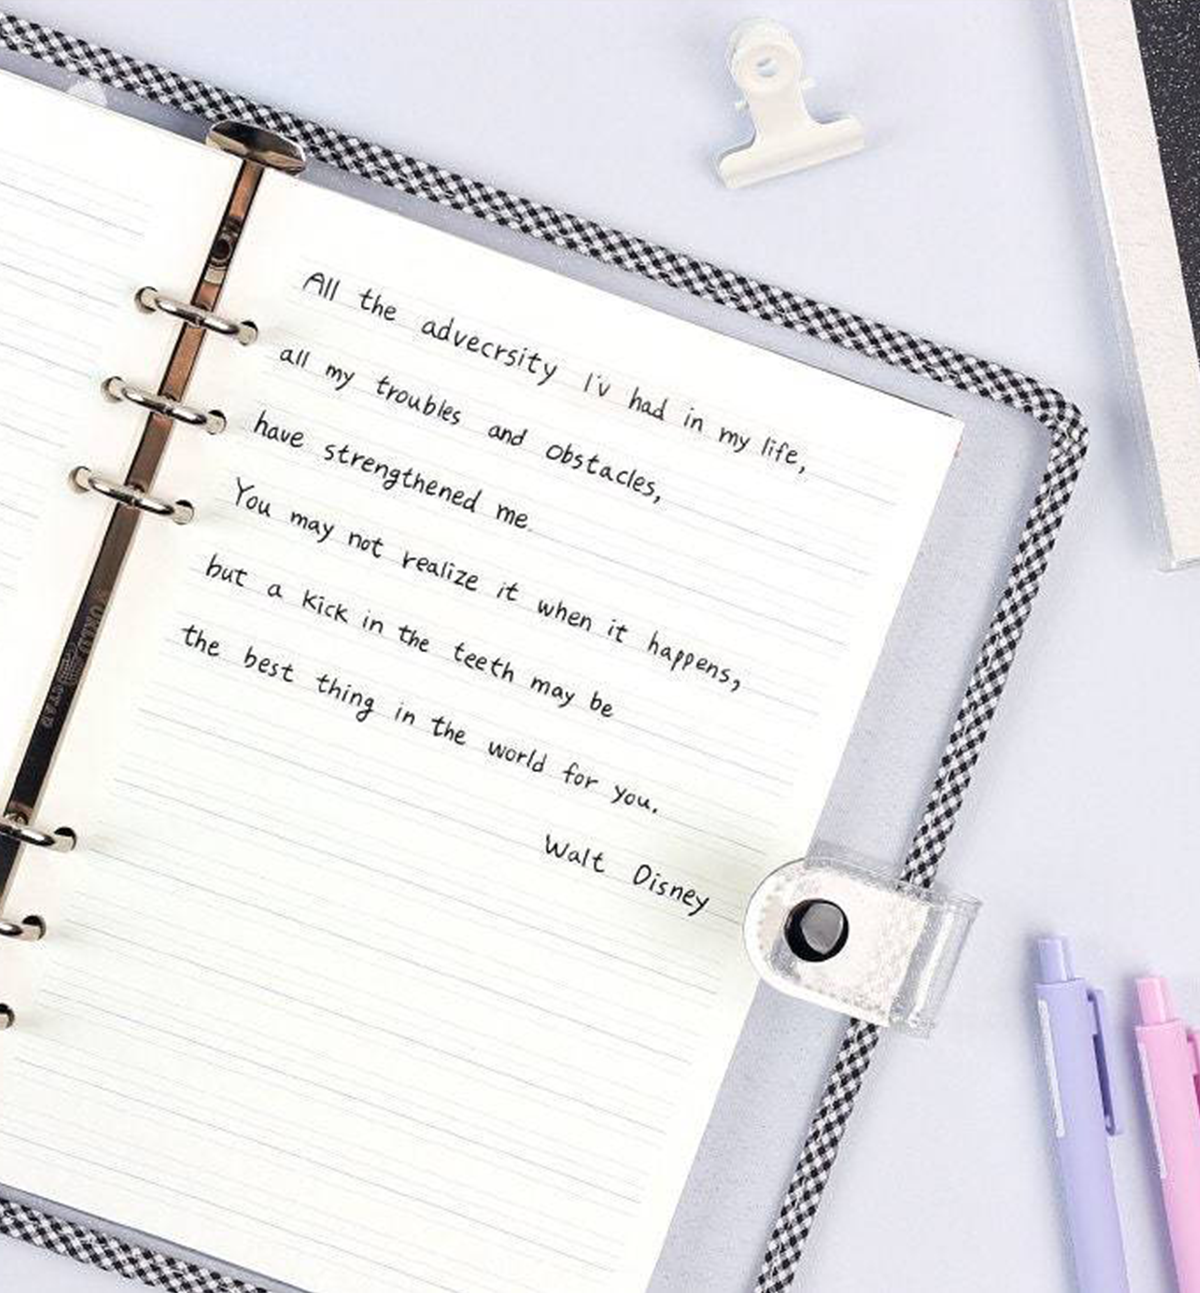 All the advecrsity I'v had in my life,
all my troubles and obstacles,
have strengthened me.
You may not realize it when it happens,
but a kick in the teeth may be
the best thing in the world for you.
Walt Disney
WORLD STAR